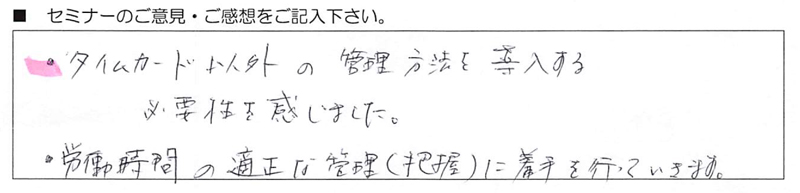 ■ セミナーのご意見・ご感想をご記入下さい。
・タイムカード以外の管理方法を導入する
必要性を感じました。
・労働時間の適正な管理(把握)に着手を行っていきます。